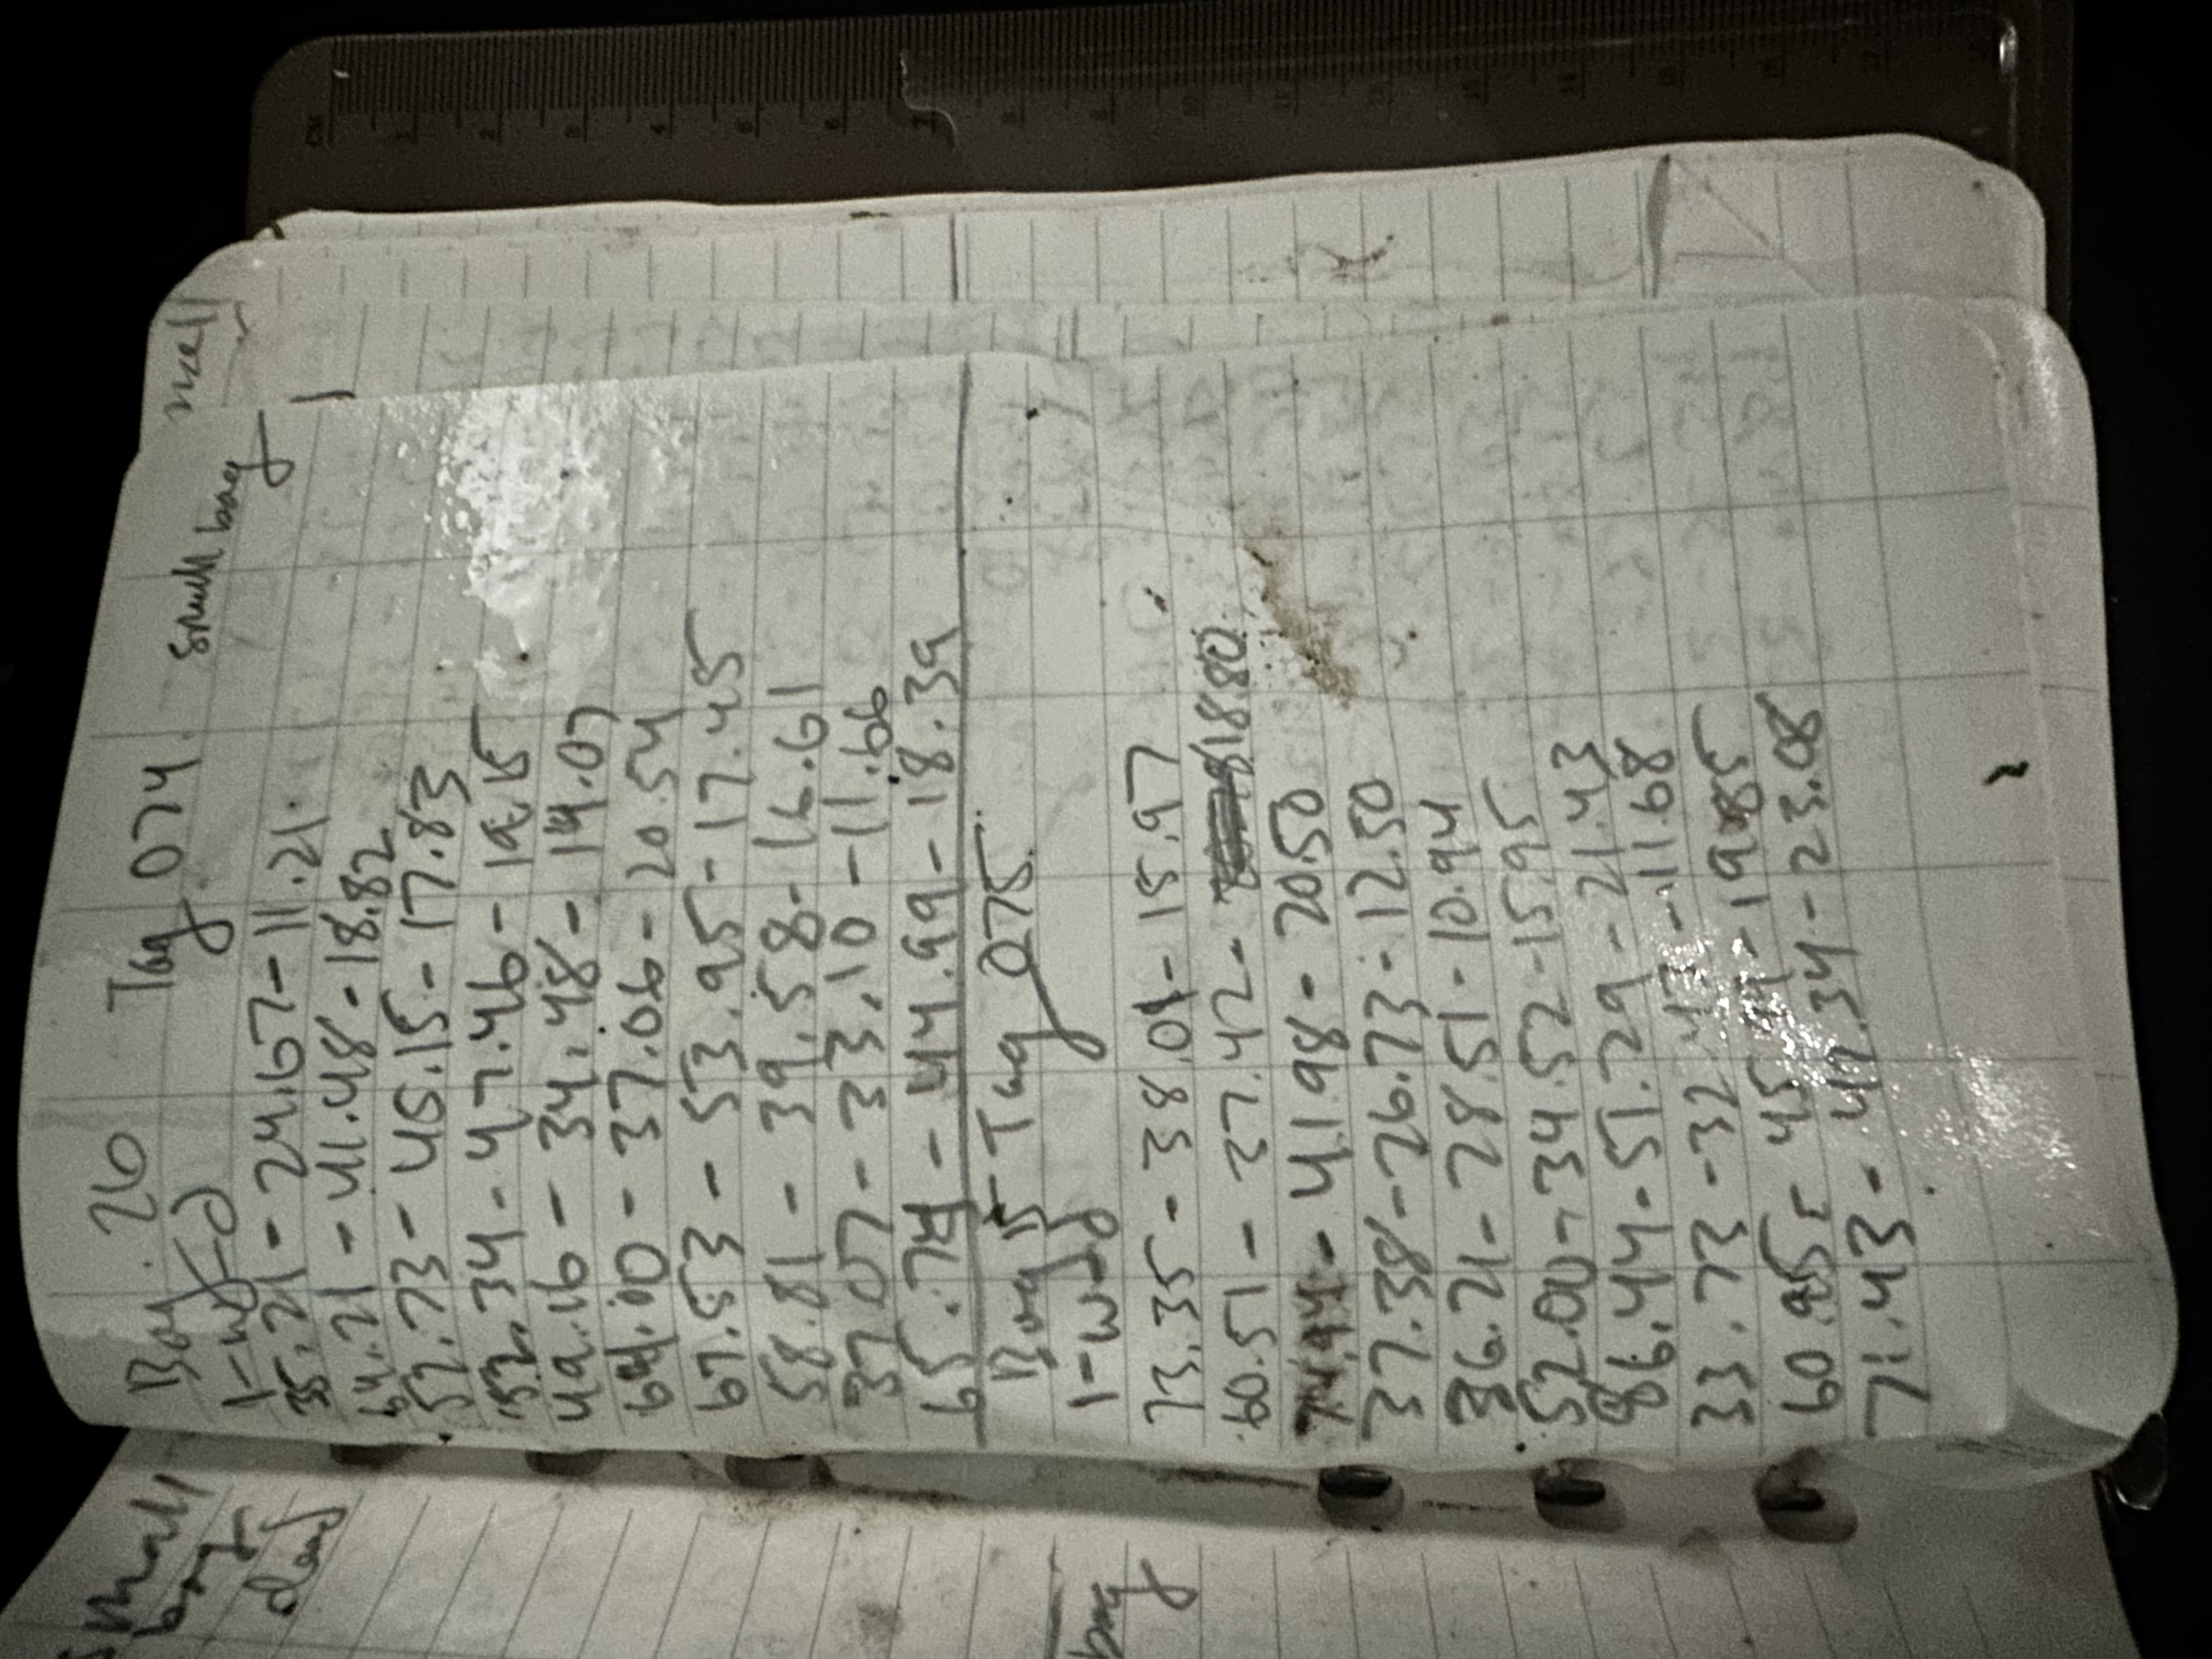 small
bag
dead
bag
Bag. 26 Tag 074 small bag
l-w-d
35.21 - 24.67 - 11.21
64.21 - 41.48 - 18.82
52.73 - 45.15 - 17.83
52.34 - 47.46 - 19.15
49.16 - 34.48 - 14.07
64.10 - 37.06 - 20.54
67.53 - 53.95 - 17.45
58.81 - 39.58 - 16.61
37.07 - 33.10 - 11.66
65.74 - 44.99 - 18.39
Bag 15 Tag 075
l-w-d
73.35 - 38.01 - 15.97
60.51 - 37.42 - 18.80
74.94 - 41.98 - 20.50
37.38 - 26.73 - 12.50
36.21 - 28.51 - 10.94
52.00 - 34.52 - 15.95
86.44 - 51.29 - 21.43
33.73 - 32.43 - 11.68
60.95 - - 19.85
71.43 - 47.34 - 23.08